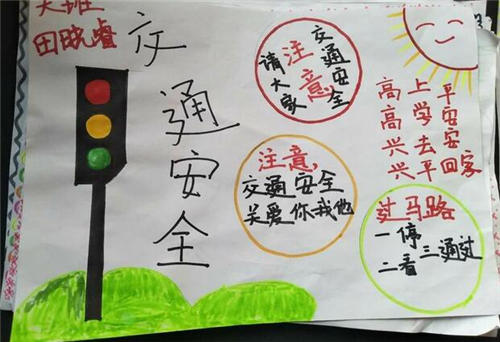 大班
田晓睿
交通安全
请大家
注意,
交通安全
高高兴兴
上学去平
平安安回家
注意,
交通安全
关爱你我他
过马路
一停
二看三通过